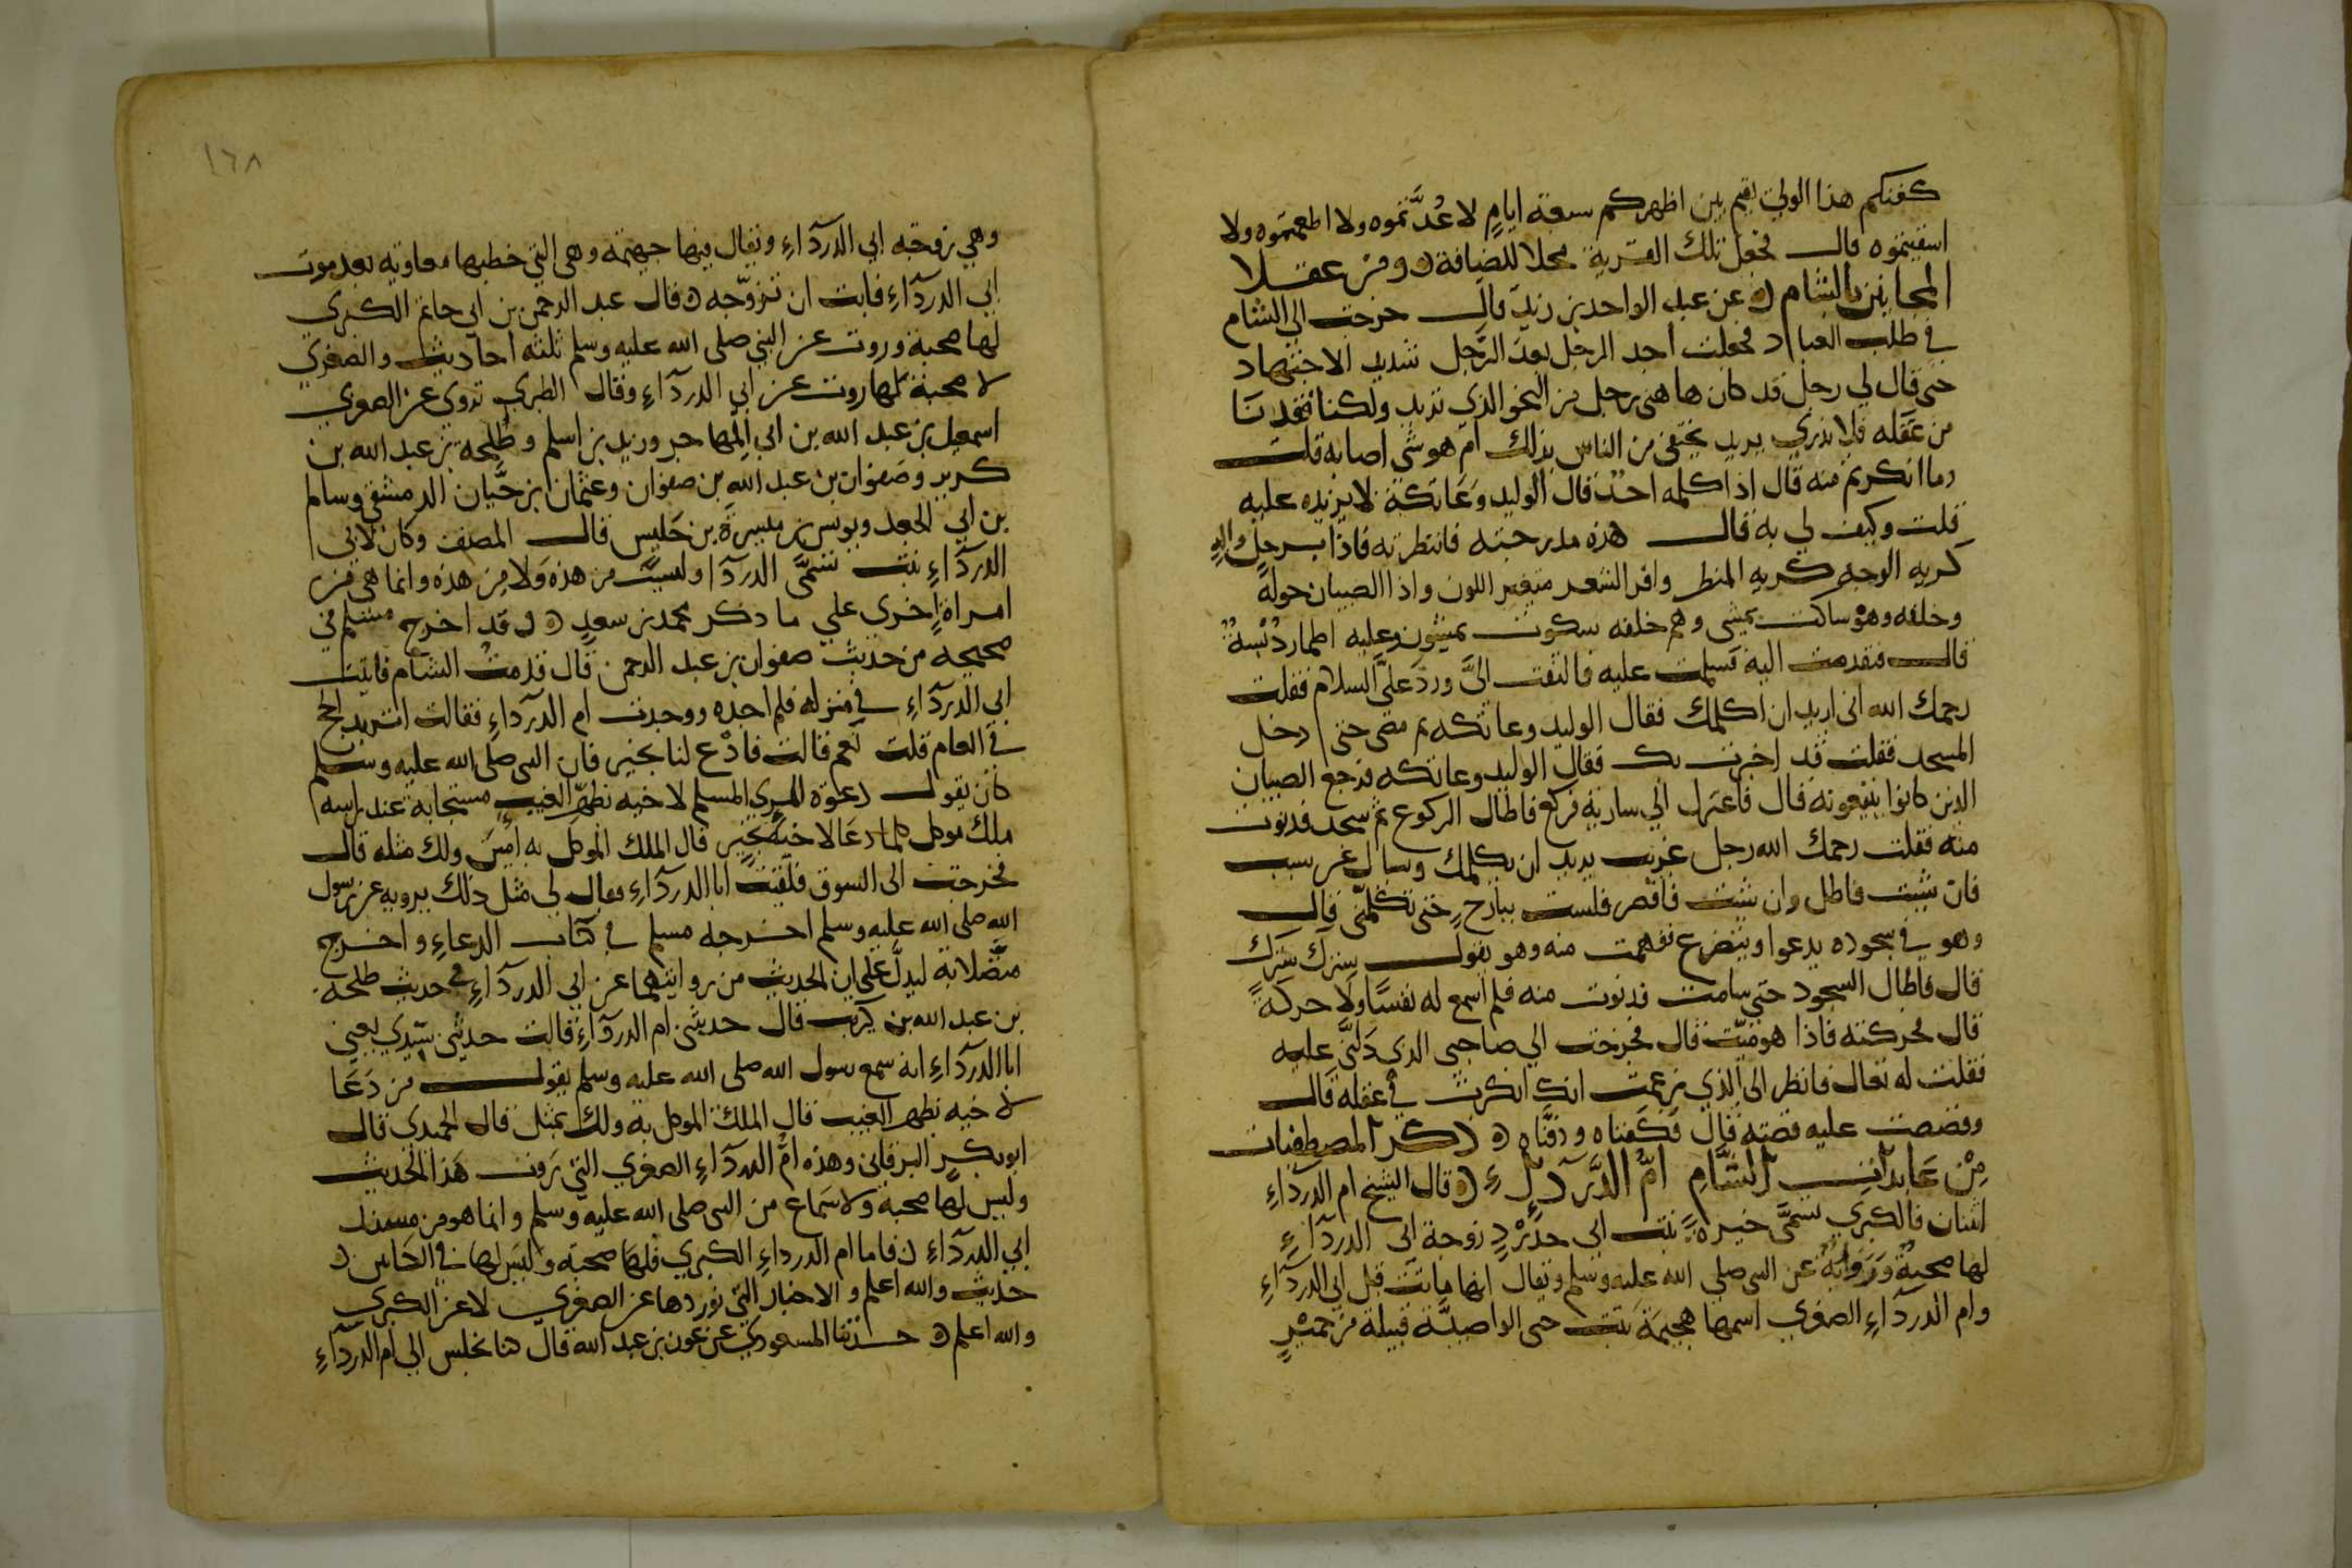 كفنكم هذا الولي يقيم بين اظهركم سبعة ايامٍ لا عُدَّتموه ولا اطعمتموه ولا
اسقيتموه قال فجعل تلك القرية محلا للضيافة ومن عقلا
المجانين بالشام عن عبد الواحد بن زيد قال خرجت الي الشام
في طلب العباد فجعلت اجد الرجل بعد الرَّجل شديد الاجتهاد
حتى قال لي رجل قد كان هاهنى رجل من النحو الذي تريد ولكنا فقدنا
من عَقَله فلا ندري يريد يحتجب من الناس بذلك ام هو شي اصابه قلت
وما انكرتم منه قال اذا كلمه احدٌ قال الوليد وعَاتكة لا يزيده عليه
قلت وكيف لي به قال هذه مدرجته فانتظرته فاذا برجل واله
كريه الوجه كريه المنظر وافر الشعر متغير اللون واذا الصبيان حوله
وخلفه وهو ساكت يمشي وهم خلفه سكوت يمشون وعليه اطمار دنسة
قال فتقدمت اليه فسلمت عليه فالتفت اليَّ وردَّ عليَّ السلام فقلت
رحمك الله اني اريد ان اكلمك فقال الوليد وعاتكه ثم مضى حتى دخل
المسجد فقلت قد اخبرت بك فقال الوليد وعاتكه فرجع الصبيان
الذين كانوا يتبعونه قال فاعتزل الي سارية فركع فاطال الركوع ثم سجد فدنوت
منه فقلت رحمك الله رجل غريب يريد ان يكلمك ويسال عن سبب
فان شيت فاطل وان شيت فاقصر فلست ببارح حتى تكلمني قال
وهو في سجوده يدعوا ويتضرع ففهمت منه وهو يقول سترك سترك
قال فاطال السجود حتى سامت فدنوت منه فلم اسمع له نفسًا ولا حركةً
قال فحركته فاذا هو ميّت قال فخرجت الي صاحبي الذي دَلَّني عليه
فقلت له تعال فانظر الى الذي زعمت انك انكرت في عقله قال
وقصصت عليه قصته قال فكفناه ودفنَّاه ذكر المصطفيات
مِنْ عَابدات الشَّامِ امُّ الدَّرداءِ قال الشيخ ام الدرداءِ
اثنتان فالكبرى تسمَّى خيرة بنت ابي حَدْرَدٍ زوجة ابي الدرداءِ
لها صحبةٌ وَرَوَايةٌ عن النبي صلى الله عليه وسلم ويقال انها ماتت قبل ابي الدرداءِ
وام الدرداءِ الصغرى اسمها هجيمَة بنت حي الواصبيَّة قبيلة من حميْرٍ
١٦٨
وهي زوجة ابي الدرداءِ ويقال فيها جهيمة وهي التي خطبها معاوية بعد موت
ابي الدرداءِ فابت ان تتزوّجه قال عبد الرحمن بن ابي حاتم الكبرى
لها صحبة وروت عن النبي صلى الله عليه وسلم ثلثة احاديث والصغرى
لا صحبة لها روت عن ابي الدرداءِ وقال الطبري تروي عن الصغرى
اسمعيل بن عبد الله بن ابي المهاجر وزيد بن اسلم وطلحة بن عبد الله بن
كريز وصَفوان بن عبد الله بن صفوان وعثمان بن حَيّان الدمشقي وسالم
بن ابي الجعد ويونس بن ميسرة بن حَلبس قال المصنف وكان لابي
الدرداءِ بنت تسمَّى الدرداء وليستْ من هذه وَلا من هذه وانما هي من
امراةٍ اخرى علي ما ذكر محمد بن سعدٍ وقد اخرج مسلم في
صحيحه من حديث صفوان بن عبد الرحمن قال قدمتُ الشام فاتيت
ابي الدرداءِ في منزله فلم اجده ووجدت ام الدرداءِ فقالت اتريد الحج
في العام قلت نعم قالت فادْع لنا بخير فان النبي صلى الله عليه وسلم
كان يقول دعوة المري المسلم لاخيه بظهر الغيب مستجابة عند راسه
ملك موكل كلما دعَا لاخيه بخير قال الملك الموكل به امين ولك مثله قال
فخرجت الى السوق فلقيت ابا الدرداءِ فقال لي مثل ذلك يرويه عن رسول
الله صلى الله عليه وسلم اخرجه مسلم في كتاب الدعاءِ واخرج
متصلا به ليدلَّ علي ان الحديث من روايتهما عن ابي الدرداءِ في حديث طلحة
بن عبد الله بن كريز قال حدثتني ام الدرداءِ قالت حدثني سيّدي يعني
ابا الدرداءِ انه سمع رسول الله صلى الله عليه وسلم يقول من دَعَا
لاخيه بظهر الغيب قال الملك الموكل به ولك بمثل قال الحميدي قال
ابو بكرٍ البرقاني وهذه امّ الدرداءِ الصغرى التي رَوت هَذا الحديث
وليس لها صحبة ولا سَماع من النبي صلى الله عليه وسلم وانما هو من مسند
ابي الدرداءِ فاما ام الدرداءِ الكبرى فلها صحبة وليسَ لها في الكتابين
حديث والله اعلم والاخبار التي نوردها عن الصغرى لا عن الكبرى
والله اعلم حدثنا المسعودي عن عون بن عبد الله قال كنا نجلس الي ام الدرداءِ